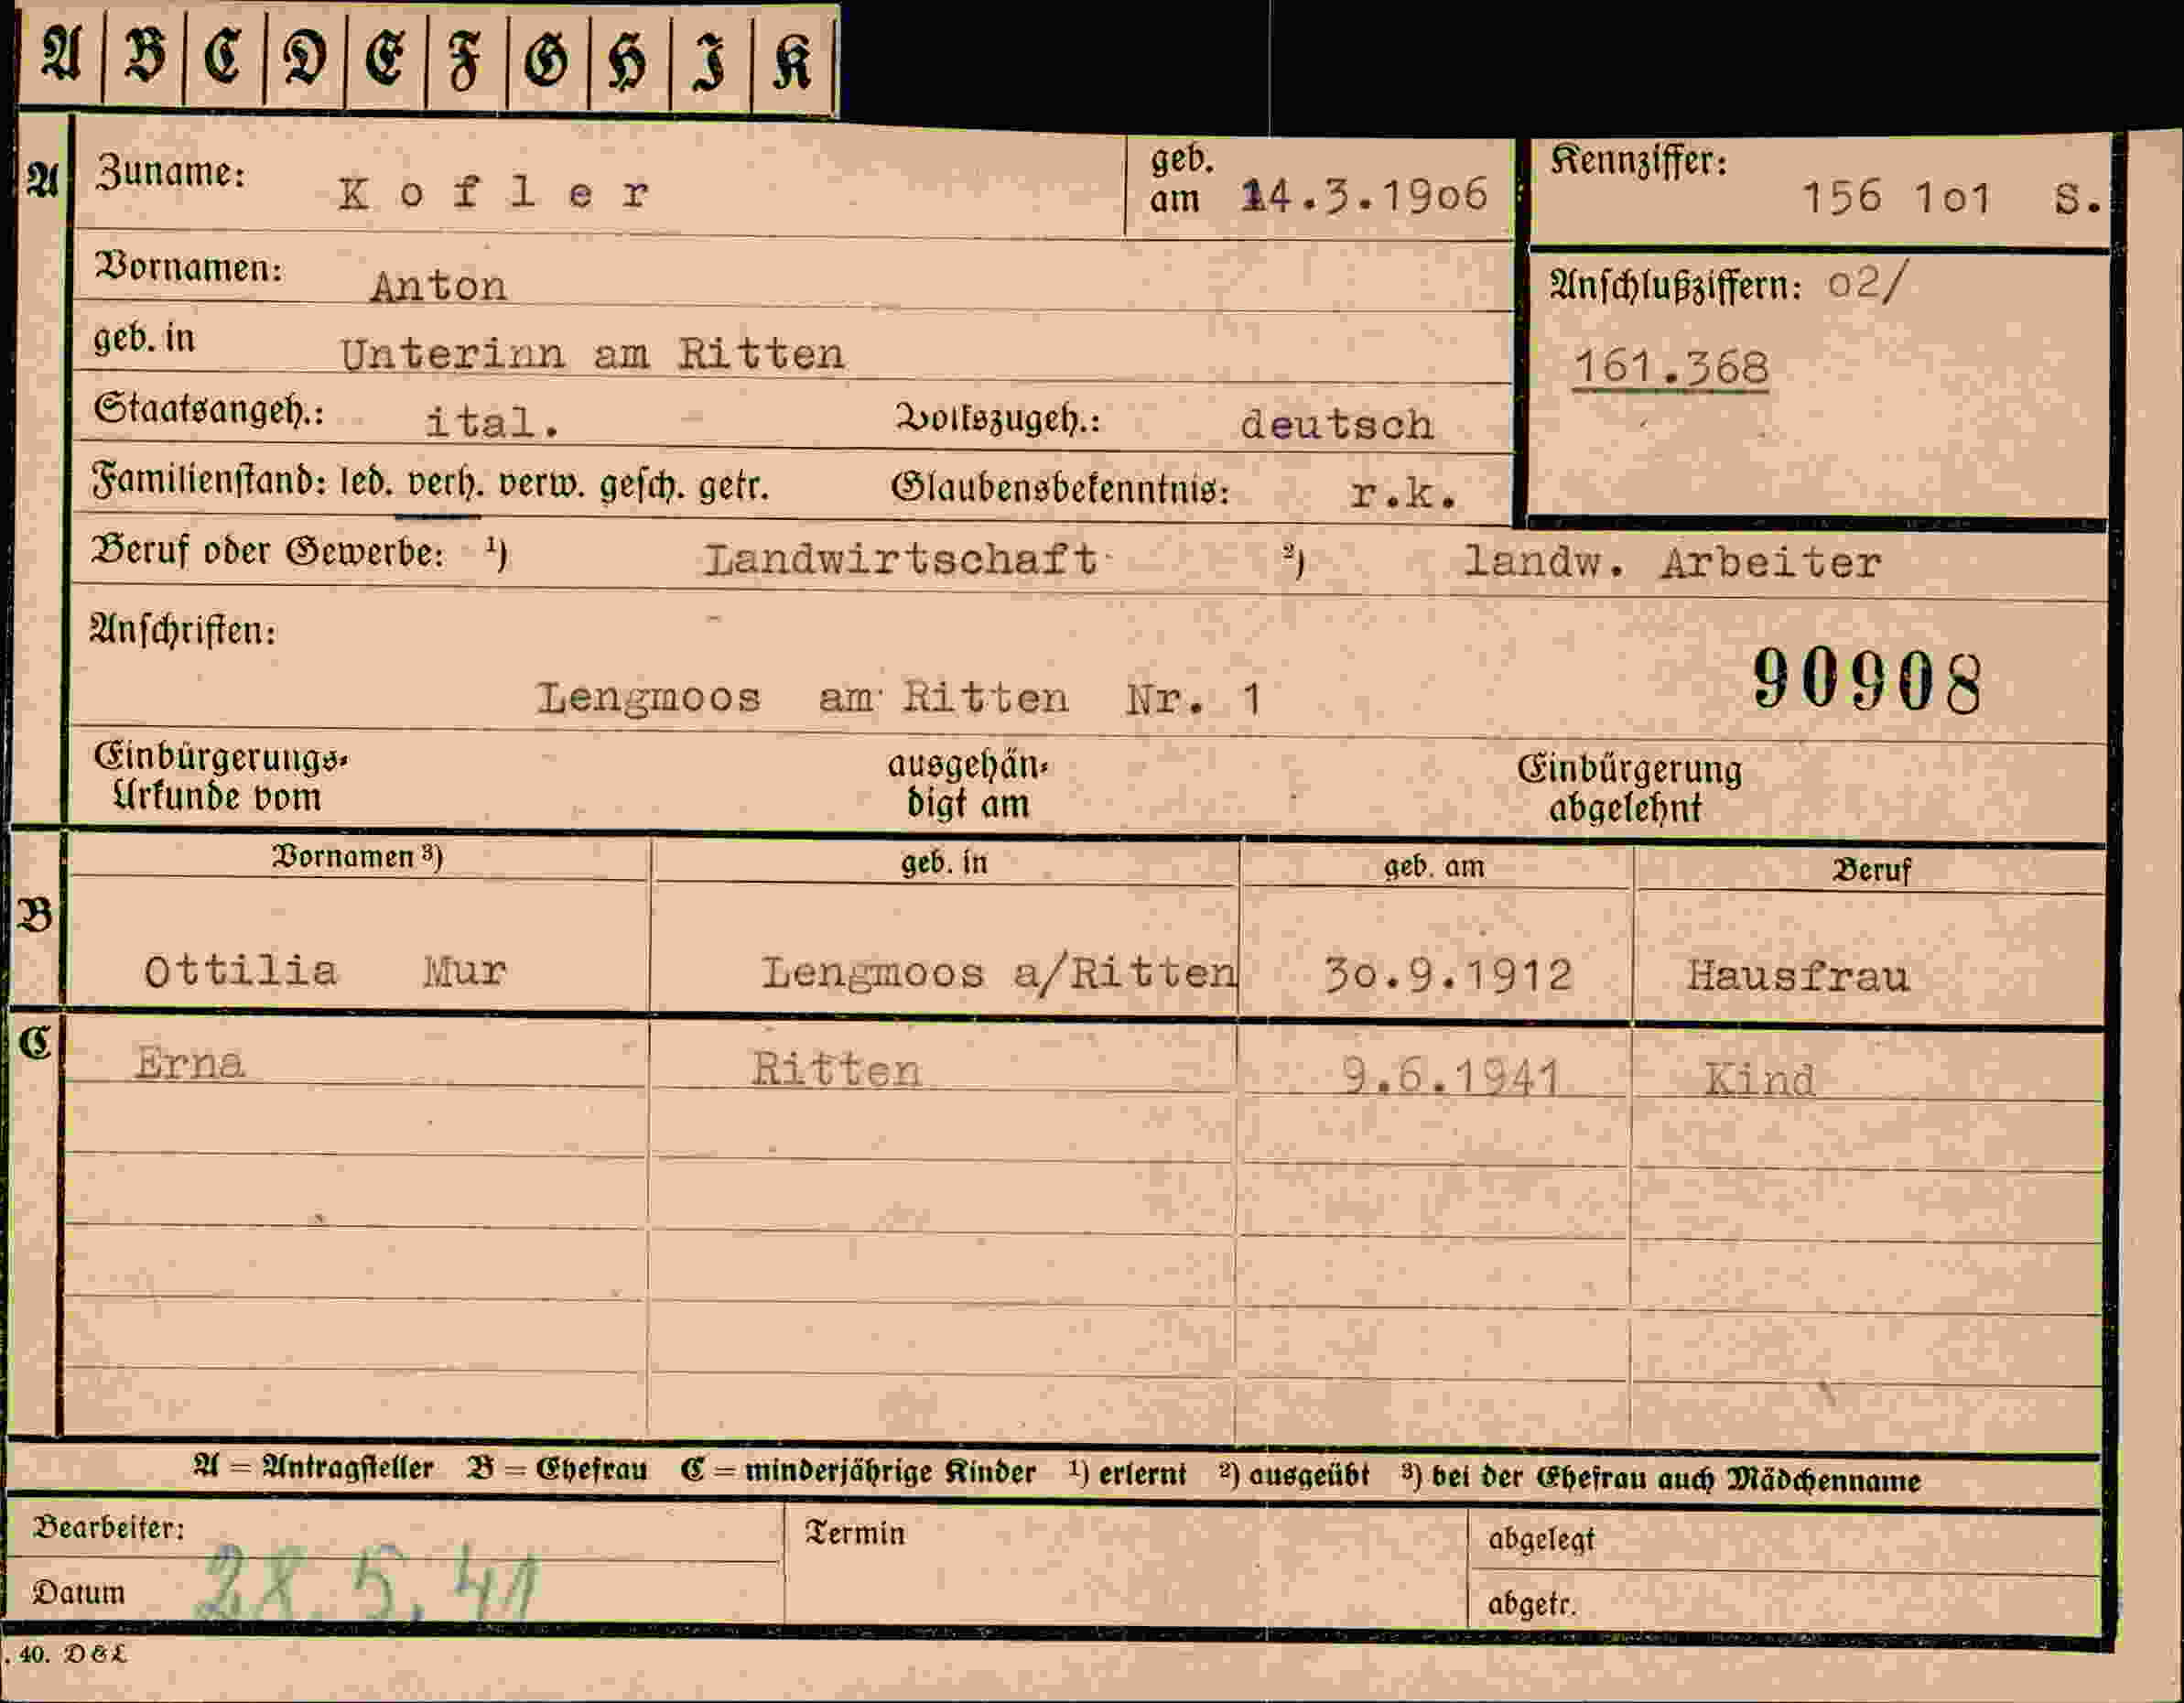 A B C D E F G H I K
A Zuname: Kofler geb. am 14.3.1906 Kennziffer: 156 1o1 S.
Vornamen: Anton Anschlußziffern: o2/
geb. in Unterinn am Ritten 161.368
Staatsangeh.: ital. Volkszugeh.: deutsch
Familienstand: led. verh. verw. gesch. getr. Glaubensbekenntnis: r.k.
Beruf oder Gewerbe: ¹) Landwirtschaft ²) landw. Arbeiter
Anschriften:
Lengmoos am Ritten Nr. 1 90908
Einbürgerungs- ausgehän- Einbürgerung
Urkunde vom digt am abgelehnt
Vornamen ³) geb. in geb. am Beruf
B Ottilia Mur Lengmoos a/Ritten 3o.9.1912 Hausfrau
C Erna Ritten 9.6.1941 Kind
A = Antragsteller B = Ehefrau C = minderjährige Kinder ¹) erlernt ²) ausgeübt ³) bei der Ehefrau auch Mädchenname
Bearbeiter: Termin abgelegt
Datum 28.5.41 abgetr.
. 40. D & L